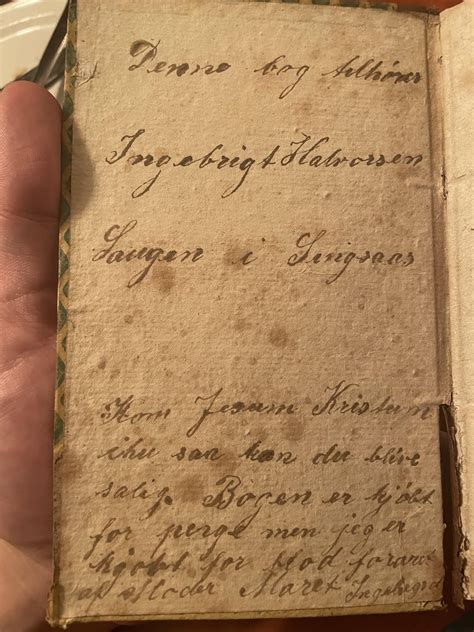 Denne bog tilhører
Ingebrigt Halvorsen
Laugen i Singsaas
Kom Jesum Kristum
ihu saa kan du blive
salig. Bogen er kjöbt
for penge men jeg er
kjöbt for blod foraret
af Moder Maret